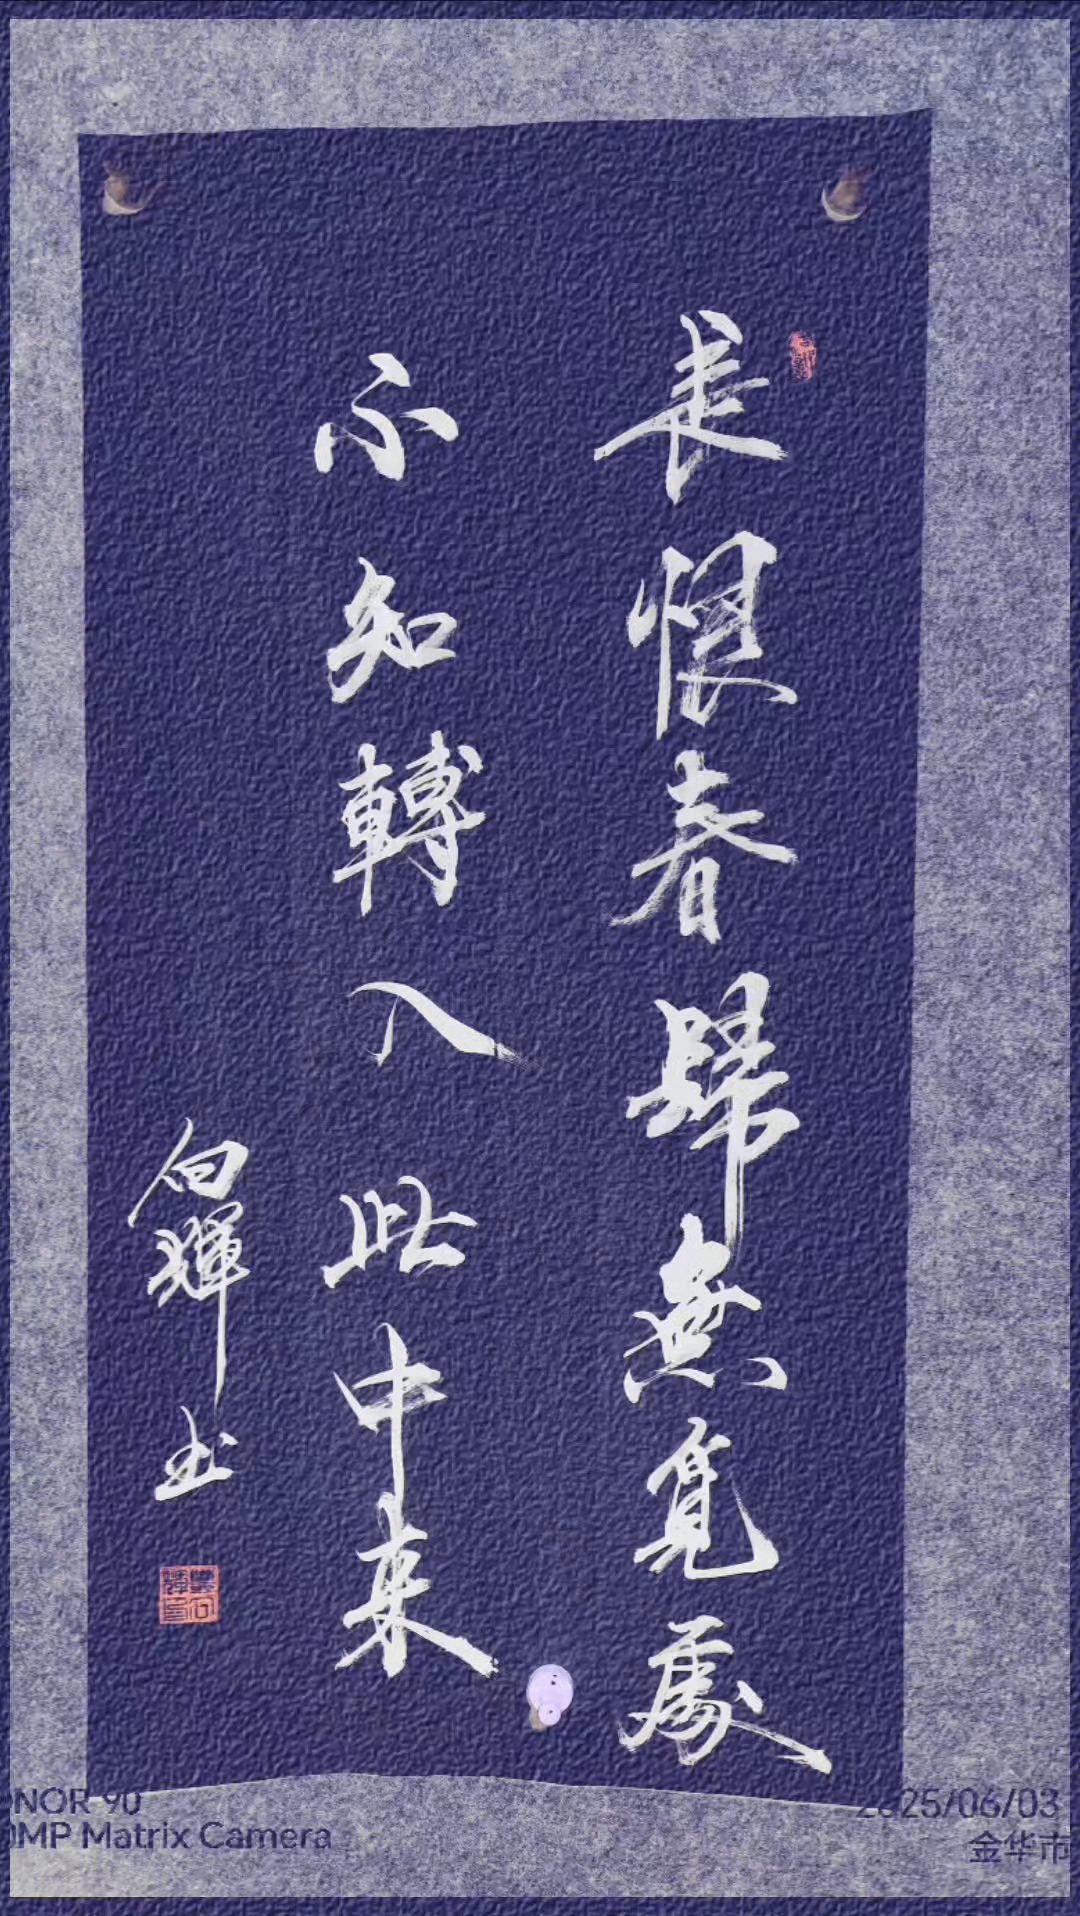 長恨春歸無覓處
不知轉入此中来
向輝书
HONOR 90
0MP Matrix Camera
2025/06/03
金华市